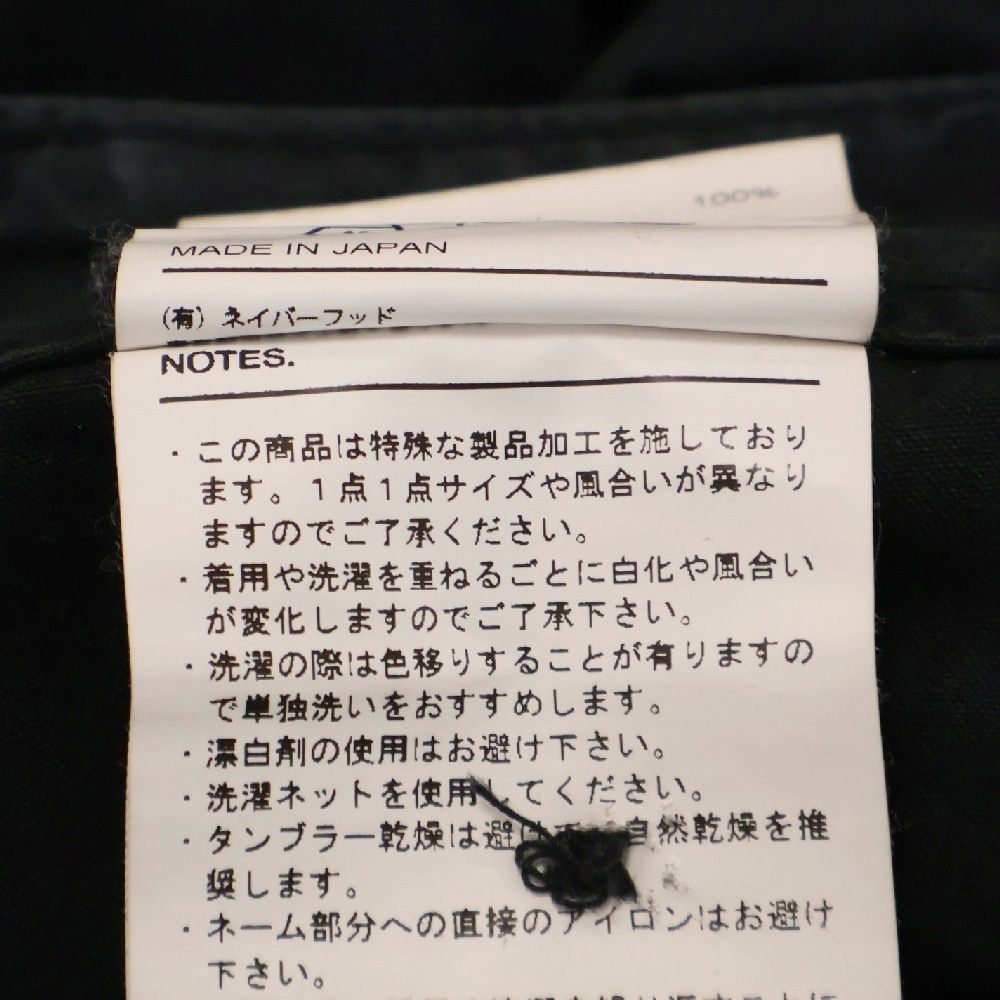 100%
MADE IN JAPAN
(有) ネイバーフッド
NOTES.
・この商品は特殊な製品加工を施しており
ます。1点1点サイズや風合いが異なり
ますのでご了承ください。
・着用や洗濯を重ねるごとに白化や風合い
が変化しますのでご了承下さい。
・洗濯の際は色移りすることが有りますの
で単独洗いをおすすめします。
・漂白剤の使用はお避け下さい。
・洗濯ネットを使用してください。
・タンブラー乾燥は避け 自然乾燥を推
奨します。
・ネーム部分への直接のアイロンはお避け
下さい。